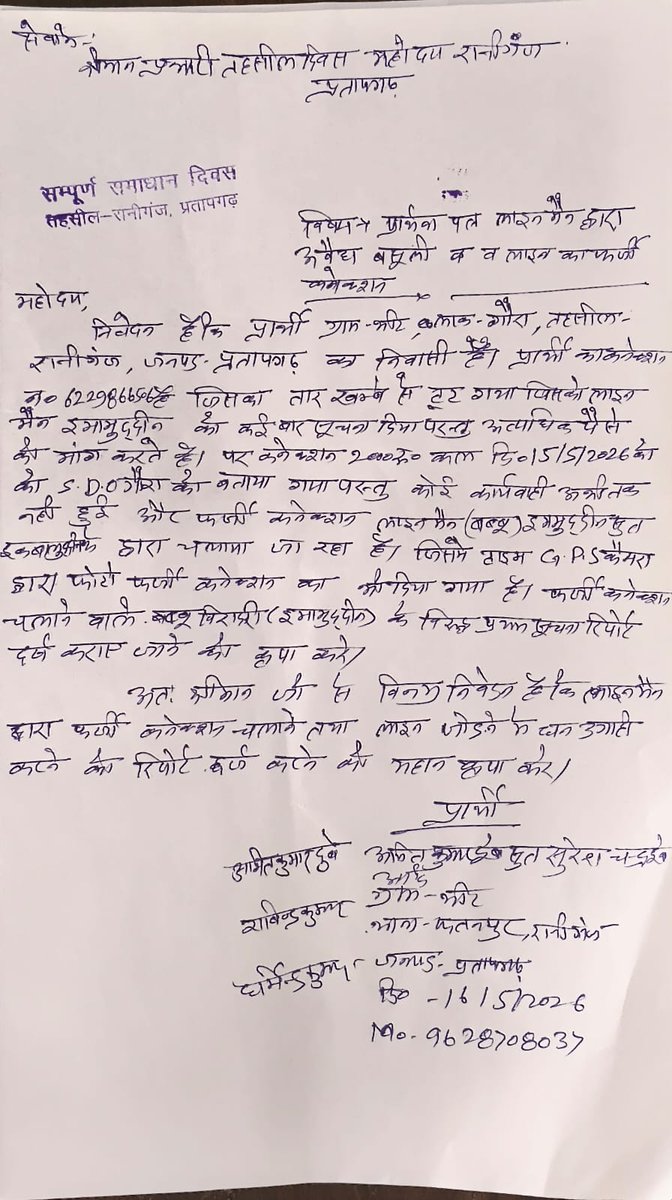 सेवामें,
श्रीमान प्रभारी तहसील दिवस महोदय रानीगंज
प्रतापगढ़
सम्पूर्ण समाधान दिवस
तहसील-रानीगंज, प्रतापगढ़
विषय→ प्रार्थना पत्र लाइन मैन द्वारा
अवैध वसूली व लाइन का फर्जी
कनेक्शन
महोदय,
निवेदन है कि प्रार्थी ग्राम-भीट, ब्लाक-गौरा, तहसील-
रानीगंज, जनपद-प्रतापगढ़ का निवासी है। प्रार्थी का कनेक्शन
न० है जिसका तार खम्बे से टूट गया जिसको लाइन
मैन इमामुद्दीन को कई बार सूचना दिया परन्तु अत्यधिक पैसे
की मांग करते है। पर कनेक्शन 2000रु० कल दि० 15/5/2026 को
को S.D.O गौरा को बताया गया परन्तु कोई कार्यवाही अभी तक
नही हुई और फर्जी कनेक्शन लाइन मैन (बब्बू) इमामुद्दीन पुत्र
द्वारा चलाया जा रहा है। जिसमे टाइम G.P.S कैमरा
द्वारा फोटो फर्जी कनेक्शन का भी दिया गया है। फर्जी कनेक्शन
चलाने वाले (इमामुद्दीन) के विरुद्ध प्रथम सूचना रिपोर्ट
दर्ज कराए जाने की कृपा करे।
अतः श्रीमान जी से विनम्र निवेदन है कि लाइन मैन
द्वारा फर्जी कनेक्शन चलाने तथा लाइन जोडने मे धन उगाही
करने की रिपोर्ट दर्ज करने की महान कृपा करे।
प्रार्थी
अमित कुमार दुबे अमित कुमार दुबे पुत्र सुरेश चन्द्र दुबे
आदि
ग्राम-भीट
राविन्द्र कुमार थाना-फतनपुर, रानीगंज
धर्मेन्द्र कुमार जनपद-प्रतापगढ़
दि० -16/5/2026
Mo-9628708037